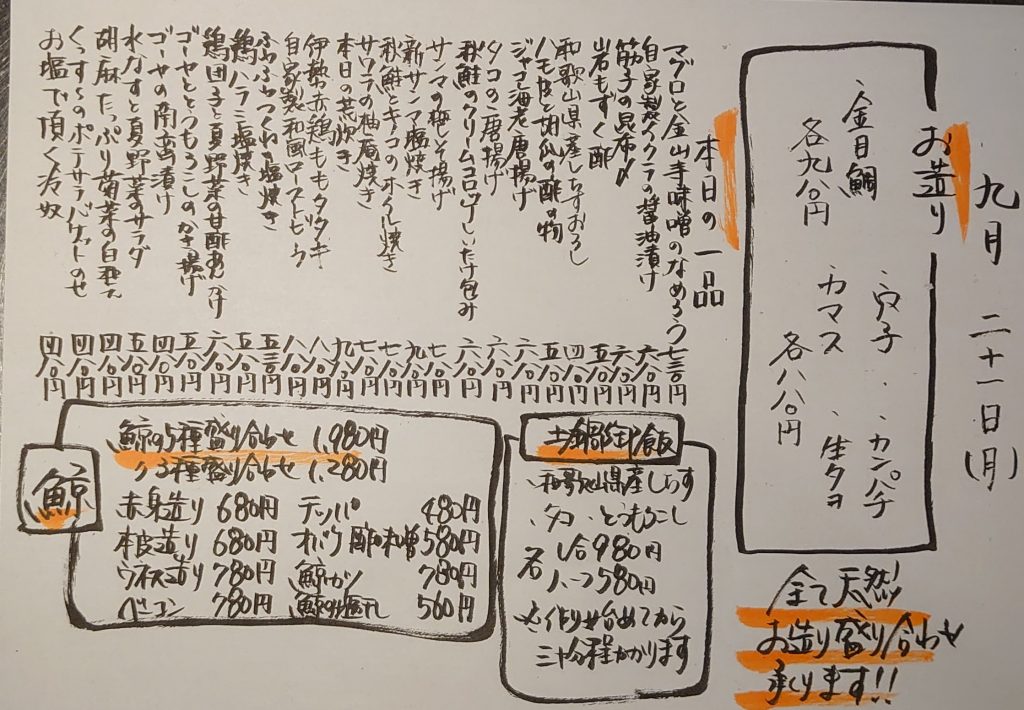 九月 二十一日(月)
お造り
・穴子 ・カンパチ
・カマス ・生タコ
各八八〇円
金目鯛
各九八〇円
全て天然!!
お造り盛り合わせ
承ります!!
本日の一品
マグロと金山寺味噌のなめろう 七三〇円
自家製イクラの醤油漬け 六八〇円
筋子の昆布〆 六八〇円
和歌山県産しらすおろし 五八〇円
岩もずく酢 四八〇円
ハモ皮と胡瓜の酢の物 五八〇円
ジャコ海老唐揚げ 六八〇円
タコの唐揚げ 六八〇円
秋鮭のクリームコロッケしいたけ包み 六八〇円
サンマの梅しそ揚げ 七八〇円
新サンマ塩焼き 九八〇円
秋鮭とキノコのホイル焼き 七八〇円
サワラの柚庵焼き 七八〇円
本日の荒炊き 七八〇円
伊勢赤鶏ももタタキ 九八〇円
自家製和風ローストビーフ 八八〇円
ふわふわつくね塩焼き 五三〇円
鶏ハラミ塩焼き 五八〇円
鶏団子と夏野菜甘酢あんかけ 六八〇円
ゴーヤととうもろこしのかき揚げ 五八〇円
ゴーヤの南蛮漬け 四八〇円
水なすと夏野菜のサラダ 五八〇円
胡麻たっぷり菊菜の白和え 四八〇円
くんすーのポテサラバケットのせ 四八〇円
お塩で頂く冷奴 四八〇円
土鍋御飯
・和歌山県産しらす
・タコ ・とうもろこし
各 一合980円
ハーフ580円
※作り始めてから
三十分程かかります
鯨
鯨の5種盛り合わせ 1,980円
〃3種盛り合わせ 1,280円
赤身造り 680円 テッパ 480円
本皮造り 680円 オバケ酢味噌 580円
ウネス造り 780円 鯨カツ 780円
ベーコン 780円 鯨の塩だれ 560円